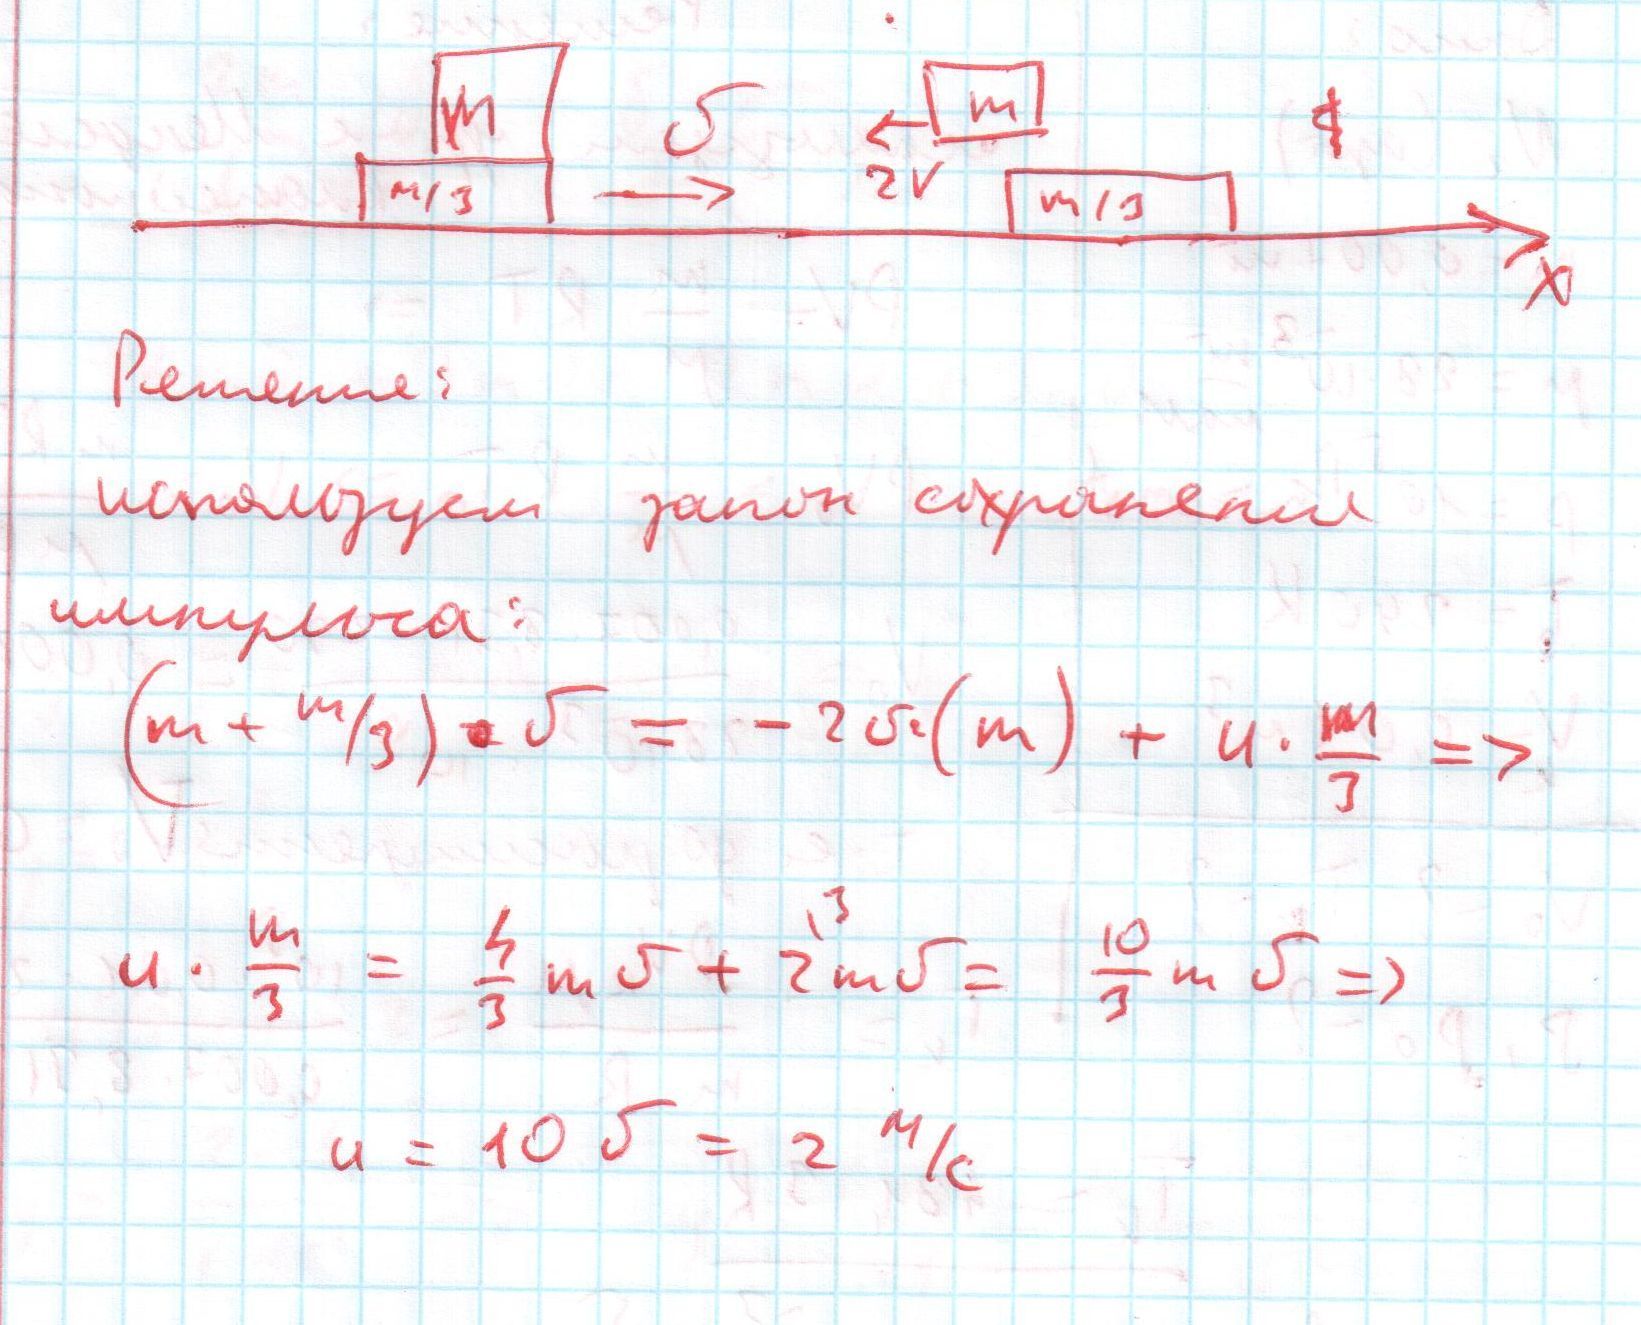 m
m/3
υ
2V
m
m/3
x
Решение:
используем закон сохранения
импульса:
(m + m/3) • υ = - 2υ·(m) + u · m/3 =>
u · m/3 = 4/3 m υ + 2\3 m υ = 10/3 m υ =>
u = 10 υ = 2 м/с